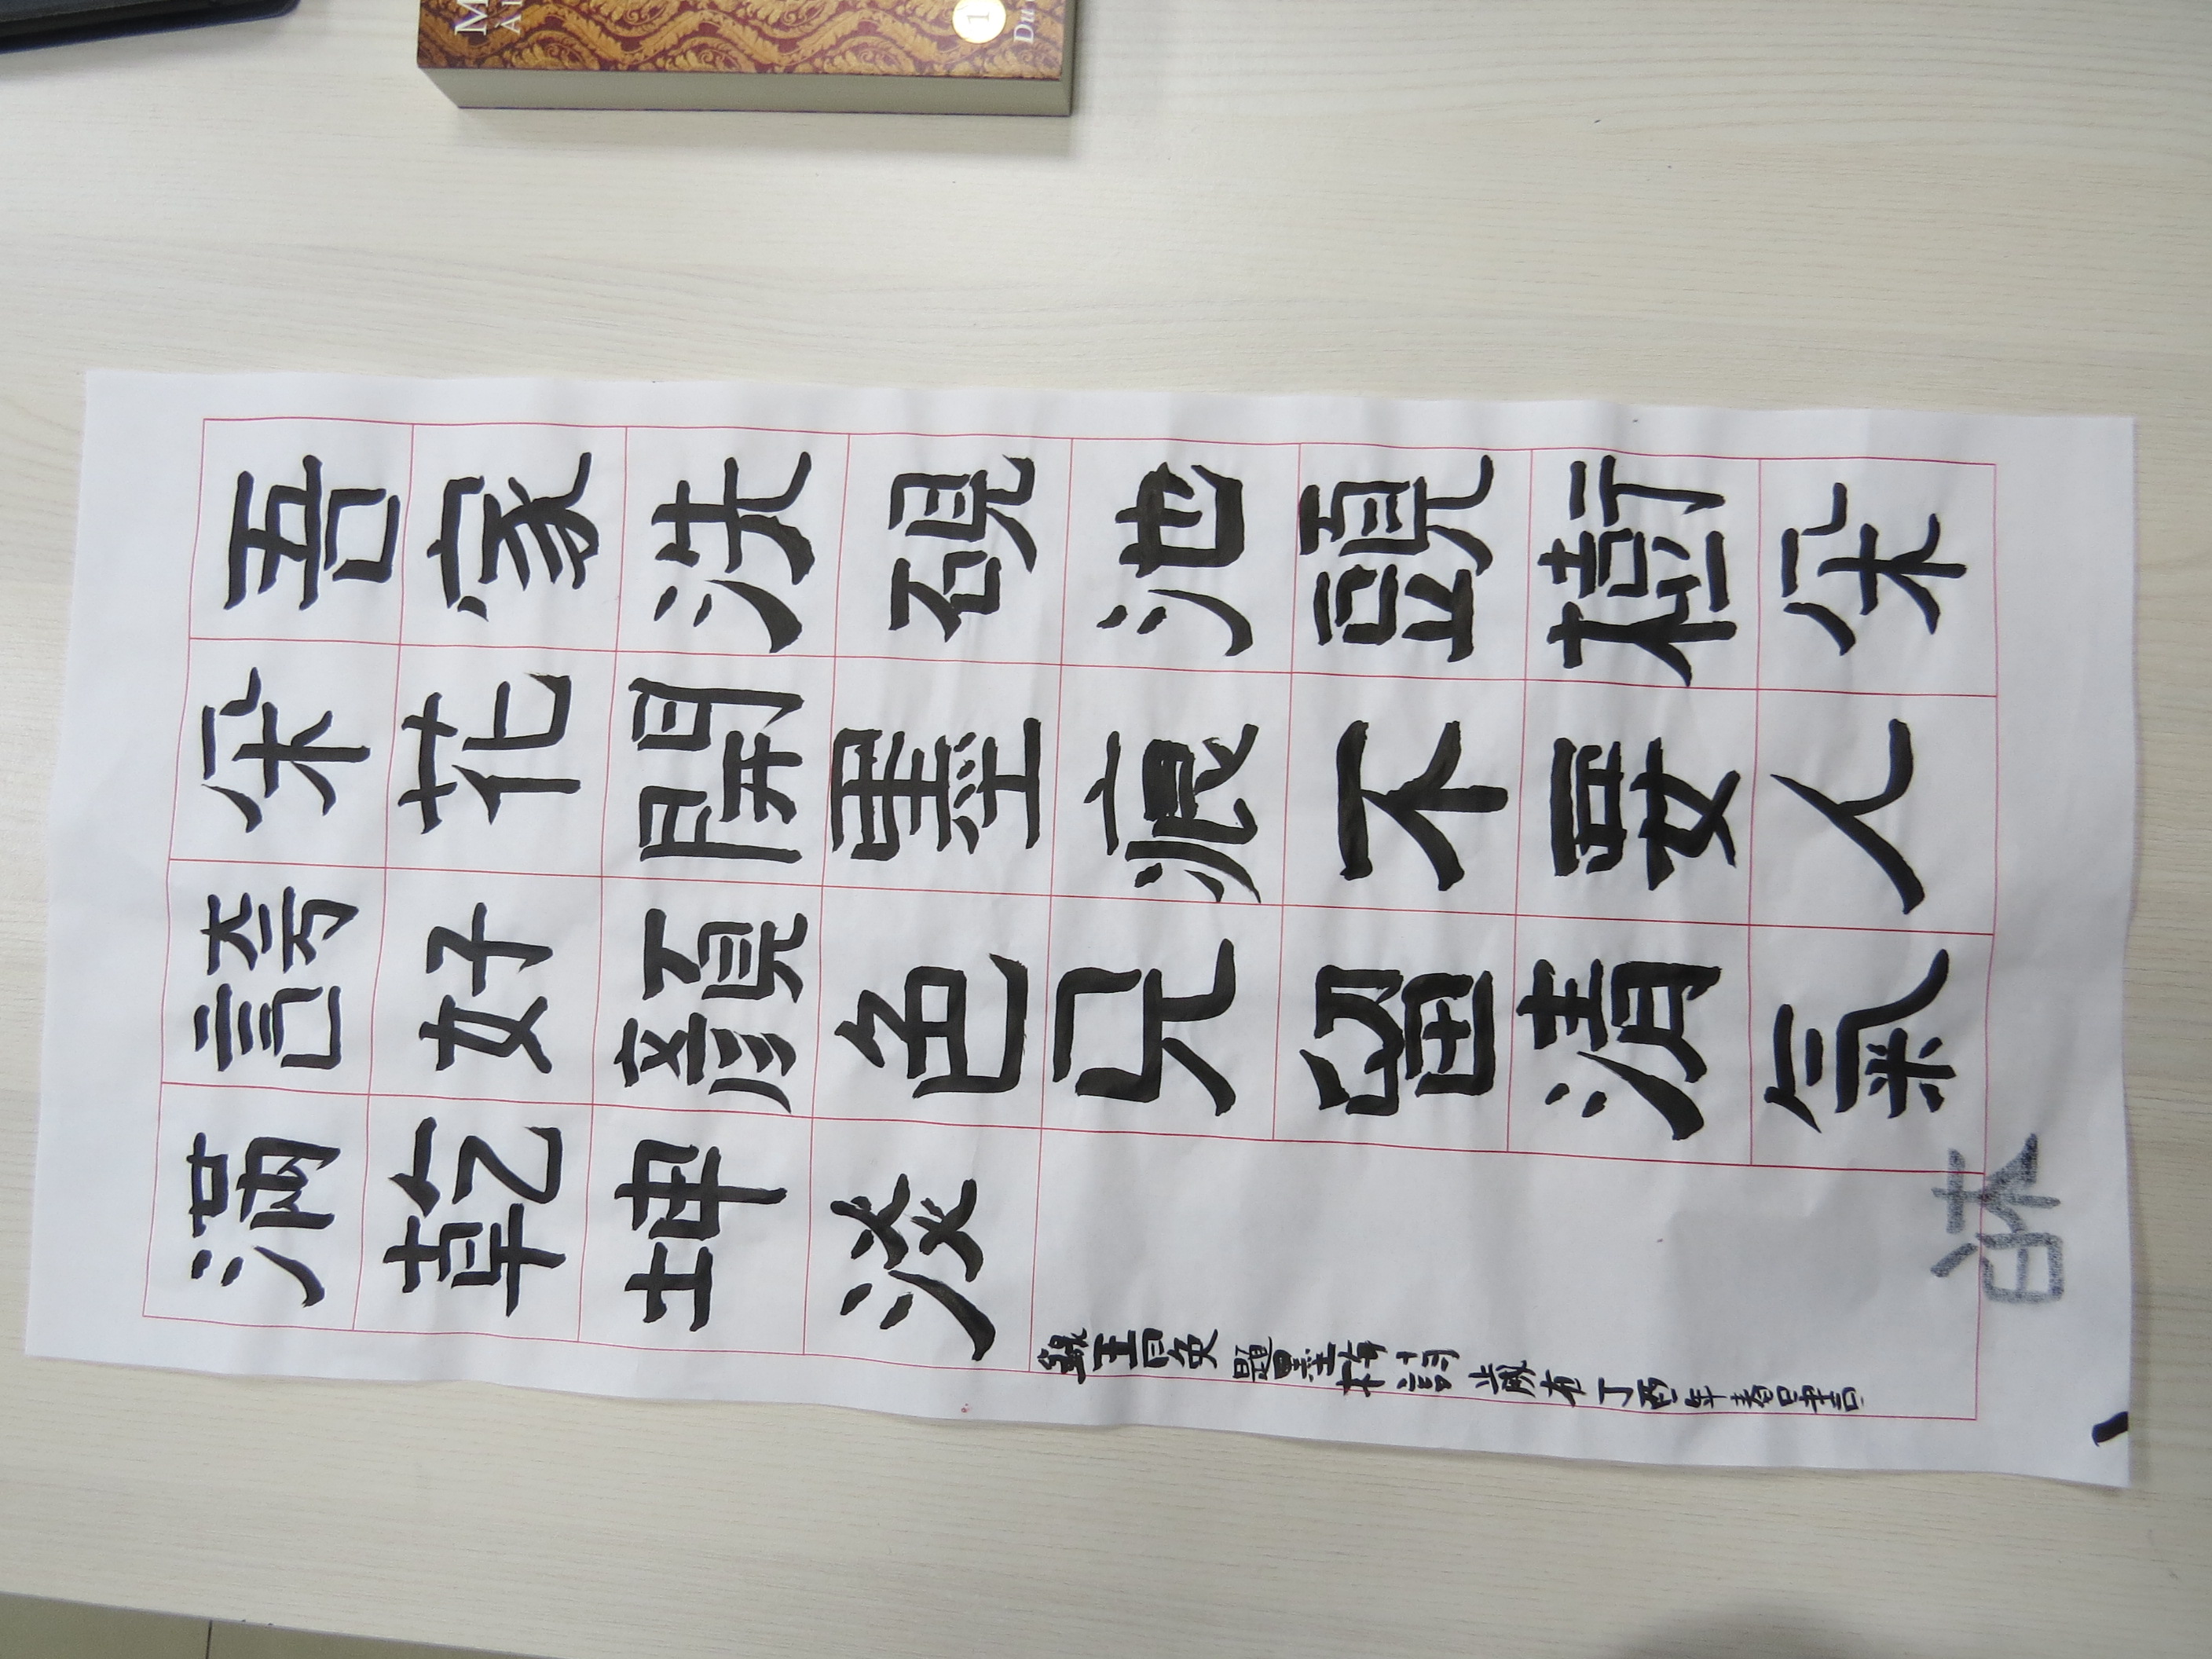 吾家洗硯池頭樹朵
朵花開墨痕不要人
誇好顏色只留清氣
滿乾坤淡
錄王冕題墨梅詩歲在丁酉年春日書
1